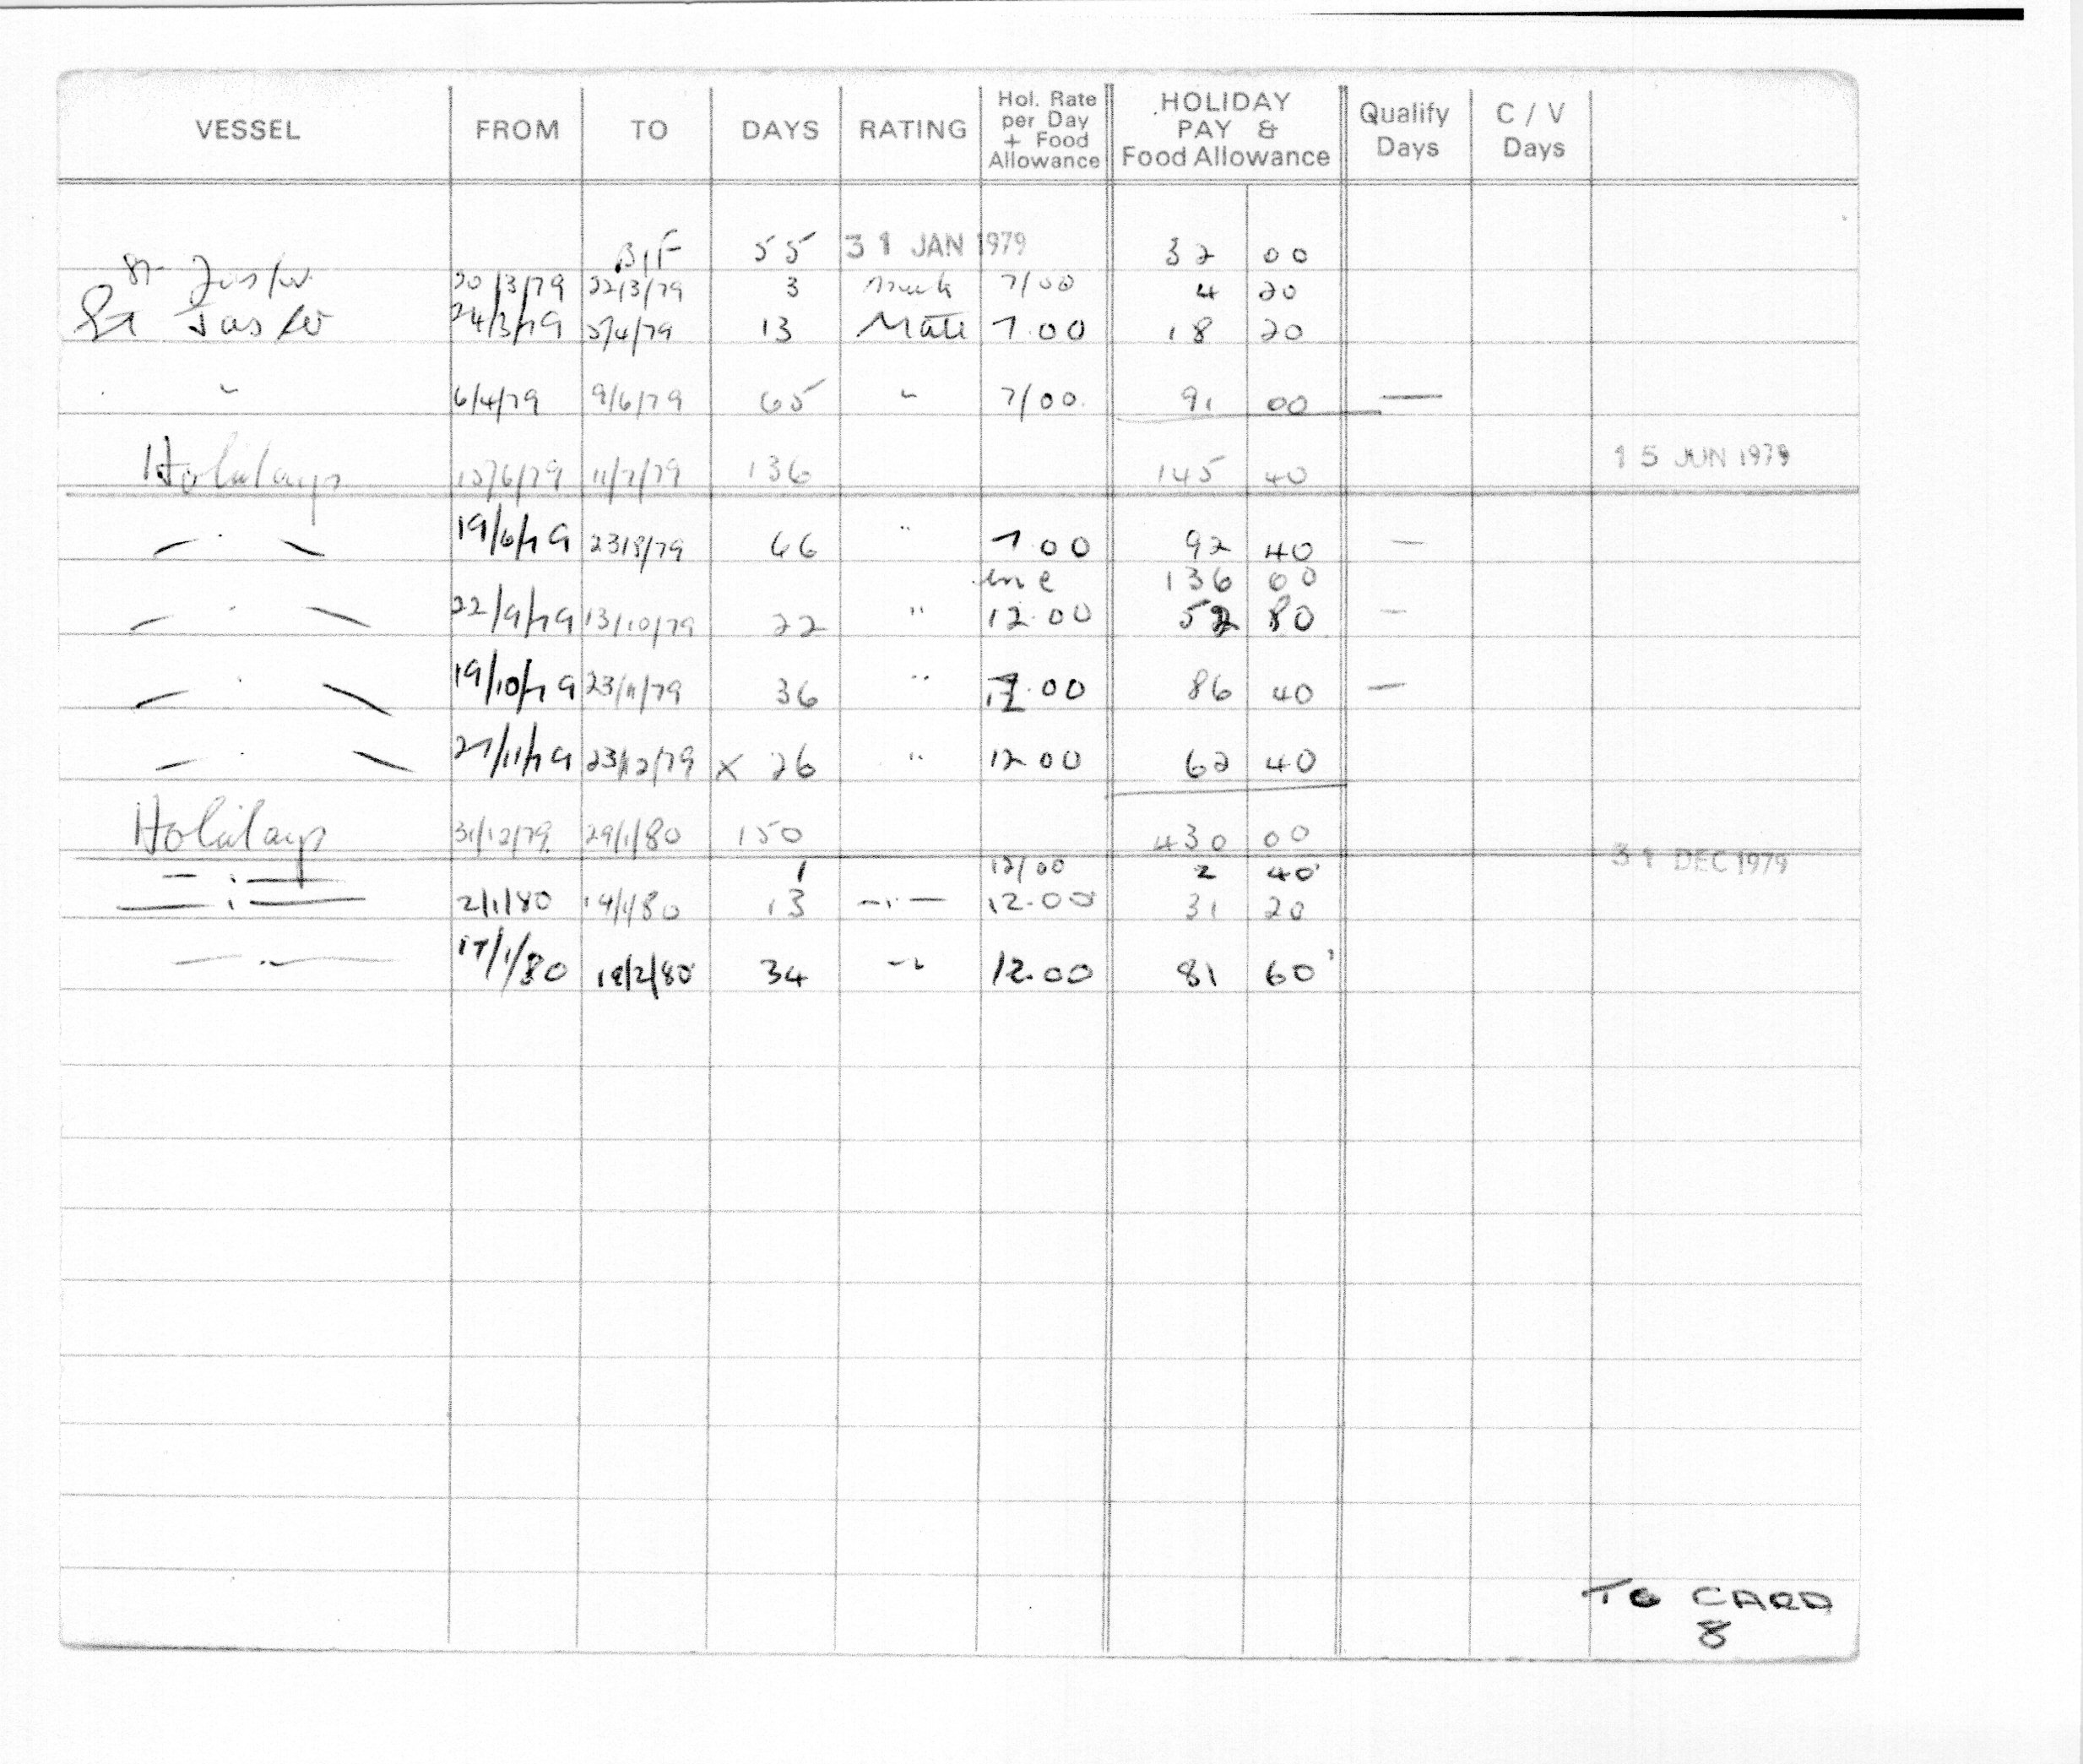 VESSEL FROM TO DAYS RATING Hol. Rate per Day + Food Allowance HOLIDAY PAY & Food Allowance Qualify Days C / V Days
B/F 55 31 JAN 1979 32 00
St 20/3/79 22/3/79 3 7/00 4 20
St 24/3/79 5/4/79 13 Mate 7.00 18 20
" 6/4/79 9/6/79 65 " 7/00 91 00 —
Holidays 15/6/79 11/7/79 136 145 40 15 JUN 1979
— " — 19/6/79 23/8/79 66 " 7.00 92 40 —
inc 136 00
— " — 22/9/79 13/10/79 22 " 12.00 52 80 —
— " — 19/10/79 23/11/79 36 " 12.00 86 40 —
— " — 27/11/79 23/12/79 x 26 " 12.00 62 40
Holidays 31/12/79 29/1/80 150 430 00 31 DEC 1979
— " — 1 12/00 2 40
— " — 2/1/80 14/1/80 13 — " — 12.00 31 20
— " — 17/1/80 19/2/80 34 " 12.00 81 60
TO CARD
8